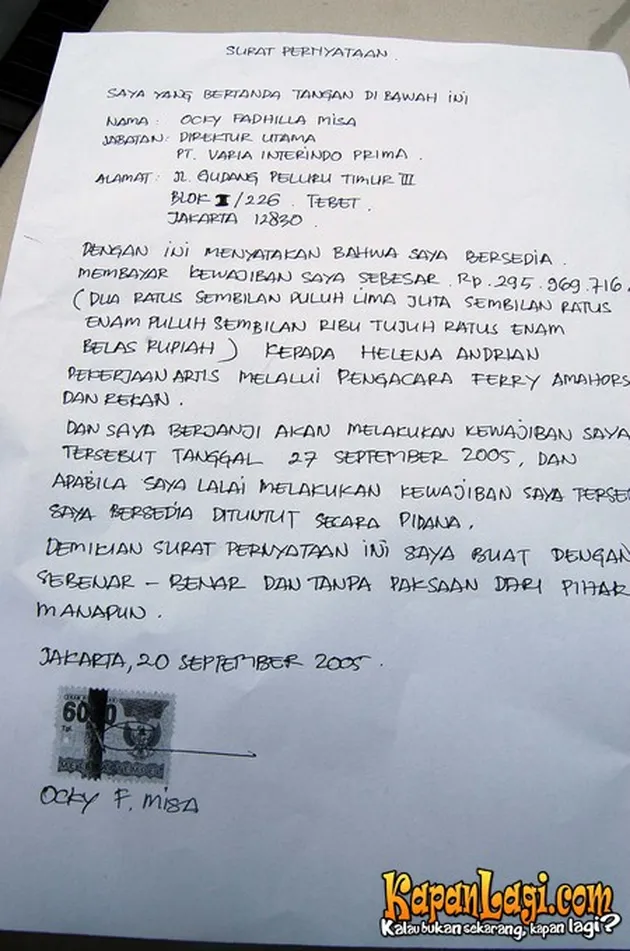 SURAT PERNYATAAN.
SAYA YANG BERTANDA TANGAN DI BAWAH INI
NAMA : OCKY FADHILLA MISA
JABATAN : DIREKTUR UTAMA
PT. VARIA INTERINDO PRIMA .
ALAMAT : JL. GUDANG PELURU TIMUR III
BLOK I/226 . TEBET .
JAKARTA 12830 .
DENGAN INI MENYATAKAN BAHWA SAYA BERSEDIA .
MEMBAYAR KEWAJIBAN SAYA SEBESAR . Rp. 295.969.716
( DUA RATUS SEMBILAN PULUH LIMA JUTA SEMBILAN RATUS
ENAM PULUH SEMBILAN RIBU TUJUH RATUS ENAM
BELAS RUPIAH ) KEPADA HELENA ANDRIAN
PEKERJAAN ARTIS MELALUI PENGACARA FERRY AMAHORS
DAN REKAN .
DAN SAYA BERJANJI AKAN MELAKUKAN KEWAJIBAN SAYA
TERSEBUT TANGGAL 27 SEPTEMBER 2005, DAN
APABILA SAYA LALAI MELAKUKAN KEWAJIBAN SAYA TERSE
SAYA BERSEDIA DITUNTUT SECARA PIDANA .
DEMIKIAN SURAT PERNYATAAN INI SAYA BUAT DENGAN
SEBENAR - BENAR DAN TANPA PAKSAAN DARI PIHAK
MANAPUN .
JAKARTA, 20 SEPTEMBER 2005 .
OCKY F. MISA
KapanLagi.com
Kalau bukan sekarang, kapan lagi?